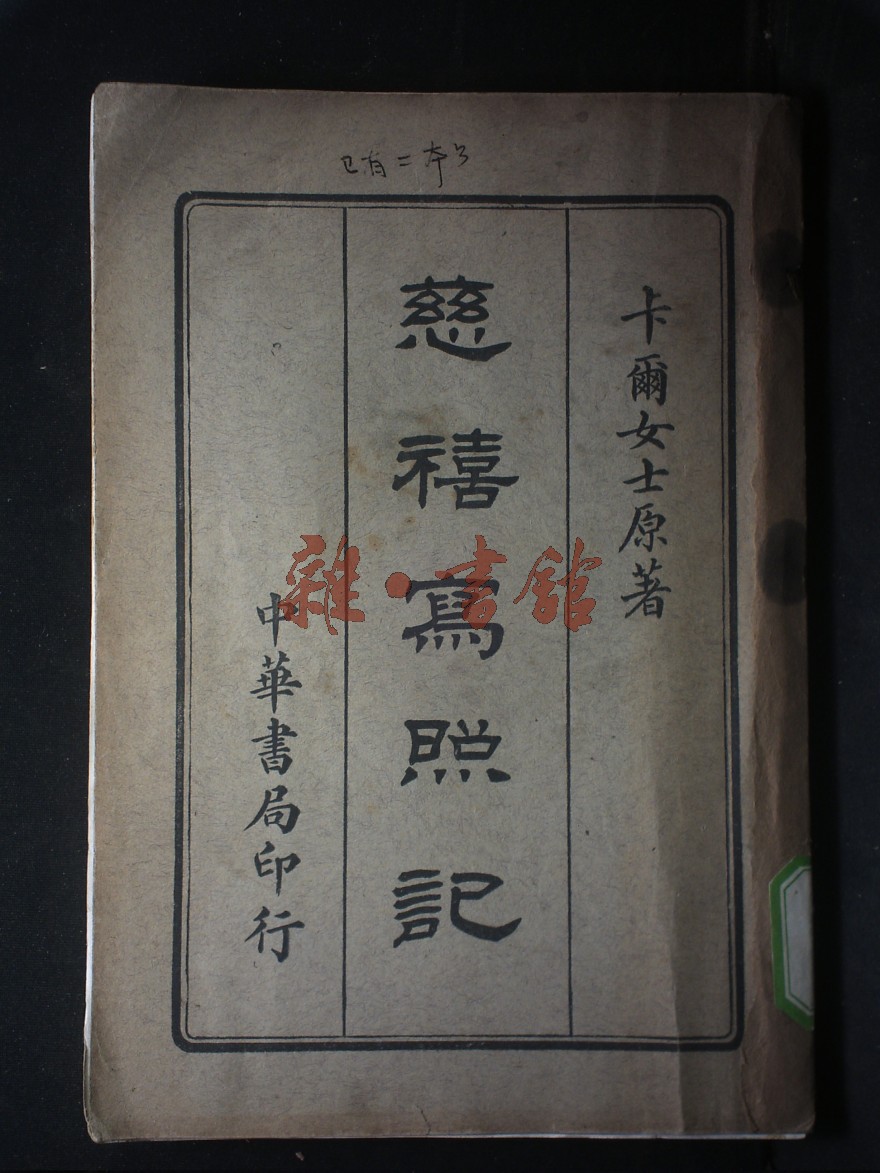 已有二本了
卡爾女士原著
慈禧寫照記
中華書局印行
雜·書館